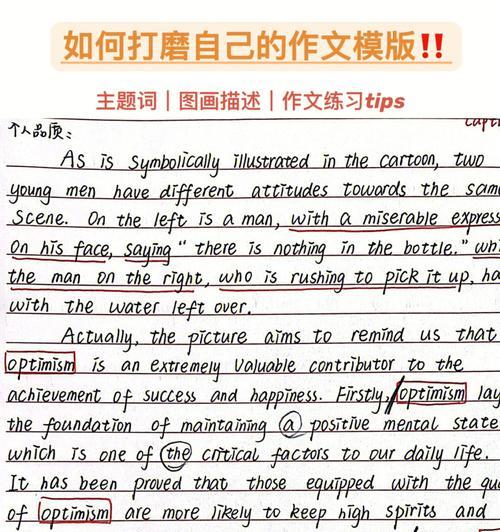 如何打磨自己的作文模版!!
主题词｜图画描述｜作文练习tips
个人品质：
As is symbolically illustrated in the cartoon, two
young men have different attitudes towards the sam
scene. On the left is a man, with a miserable express
on his face, saying "there is nothing in the bottle." whi
the man on the right, who is rushing to pick it up, ha
with the water left over.
Actually, the picture aims to remind us that
optimism is an extremely valuable contributor to the
achievement of success and happiness. Firstly, optimism lay
the foundation of maintaining a positive mental state
which is one of the critical factors to our daily life.
It has been proved that those equipped with the qua
of optimism are more likely to keep high spirits and